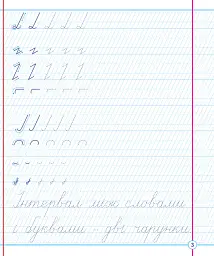 Інтервал між словами
і буквами - дві чарунки.
3